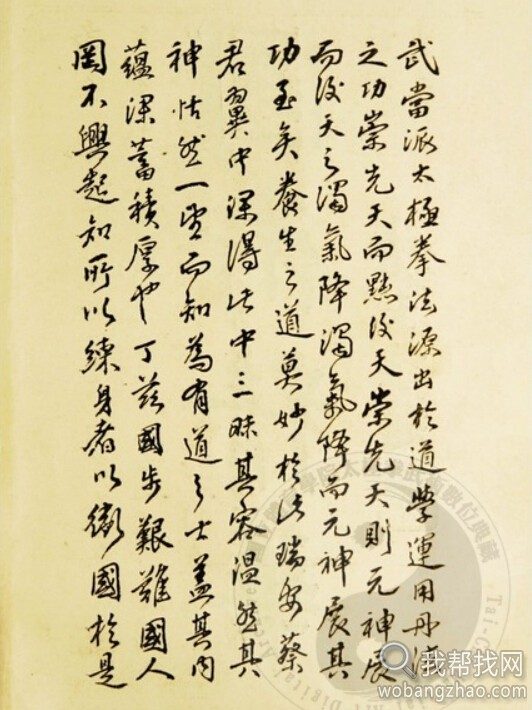 武當派太極拳法源出於道學運用丹法
之功崇先天而黜後天崇先天則元神展
而後天之濁氣降濁氣降而元神展其
功至矣養生之道莫妙於此瑞安蔡
君翼中深得此中三昧其容溫然其
神恬然一望而知為有道之士蓋其內
蘊深蓄積厚也丁茲國步艱難國人
罔不興起知所以練身者以衛國於是
學院
武術數位典藏
Tai-C
Digital
我帮找网
wobangzhao.com